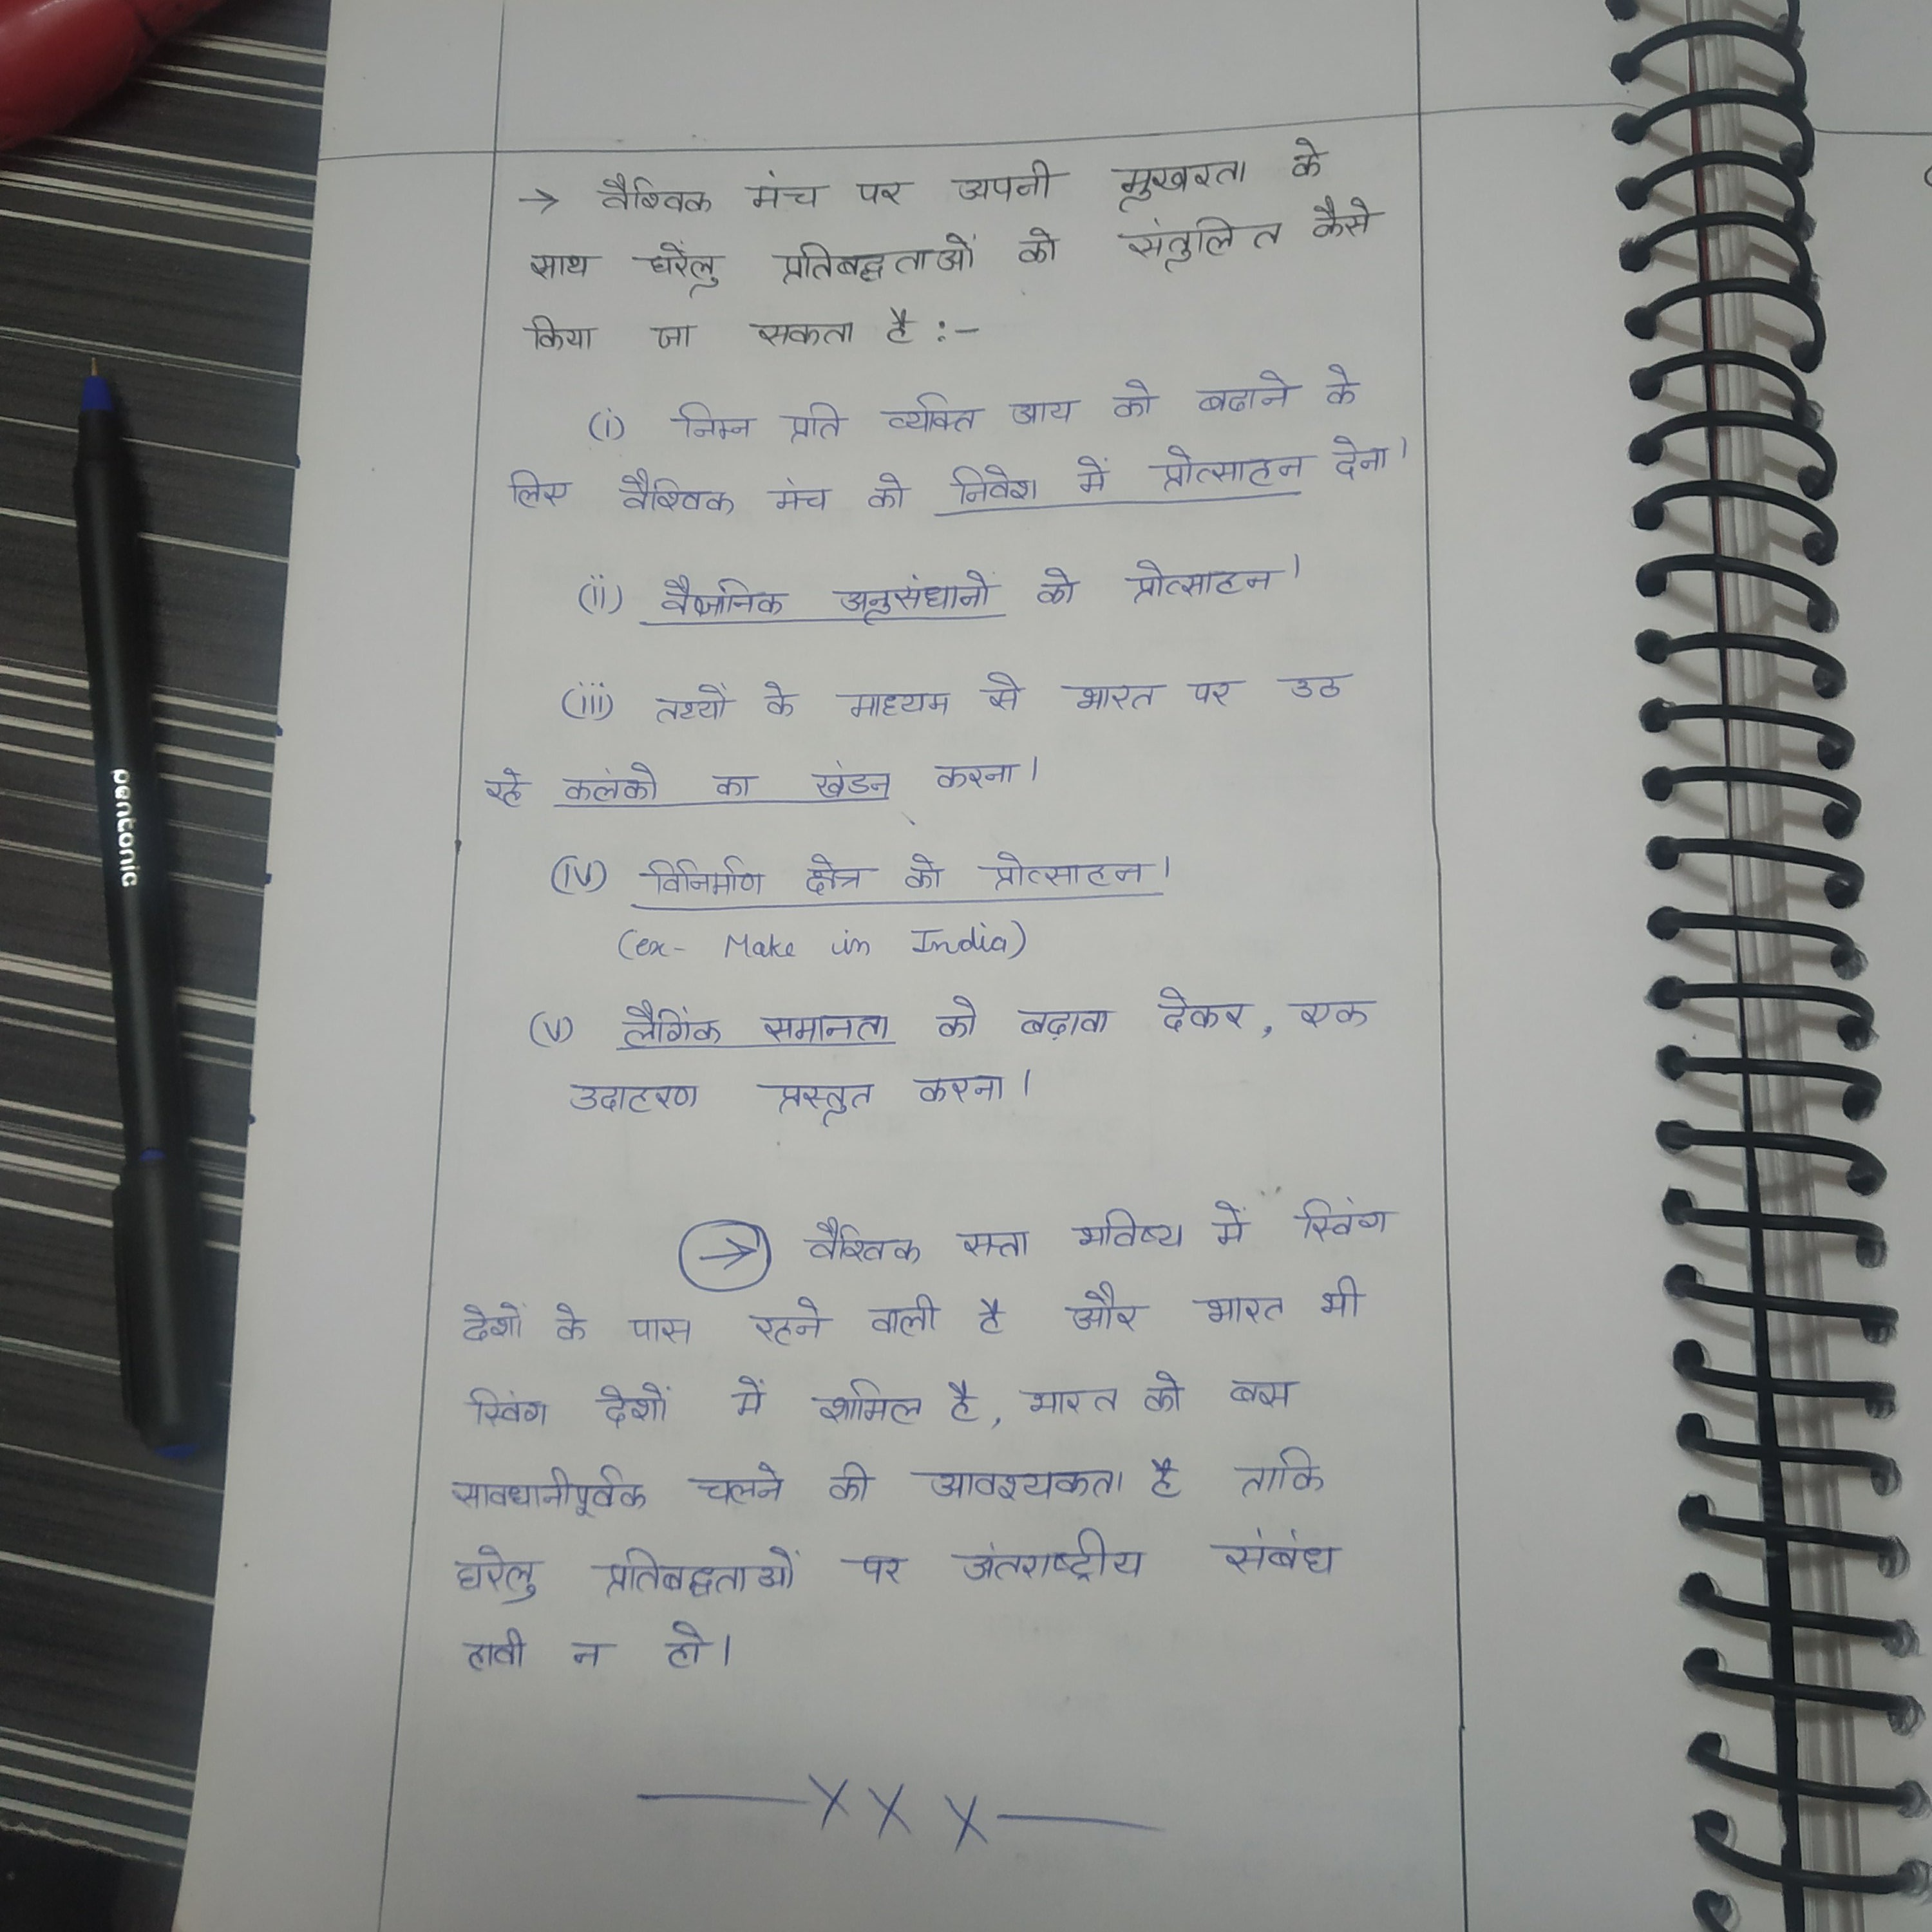 → वैश्विक मंच पर अपनी मुखरता के
साथ घरेलु प्रतिबद्धताओं को संतुलित कैसे
किया जा सकता है :-
(i) निम्न प्रति व्यक्ति आय को बढाने के
लिए वैश्विक मंच को निवेश में प्रोत्साहन देना।
(ii) वैज्ञानिक अनुसंधानों को प्रोत्साहन।
(iii) तथ्यों के माध्यम से भारत पर उठ
रहे कलंको का खंडन करना।
(iv) विनिर्माण क्षेत्र को प्रोत्साहन।
(ex- Make in India)
(v) लैगिंक समानता को बढ़ावा देकर, एक
उदाहरण प्रस्तुत करना।
→ वैश्विक सत्ता भविष्य में स्विंग
देशों के पास रहने वाली है और भारत भी
स्विंग देशों में शामिल है, भारत को बस
सावधानीपूर्वक चलने की आवश्यकता है ताकि
घरेलु प्रतिबद्धताओं पर अंतराष्ट्रीय संबंध
हावी न हो।
—X X X—
pentonic